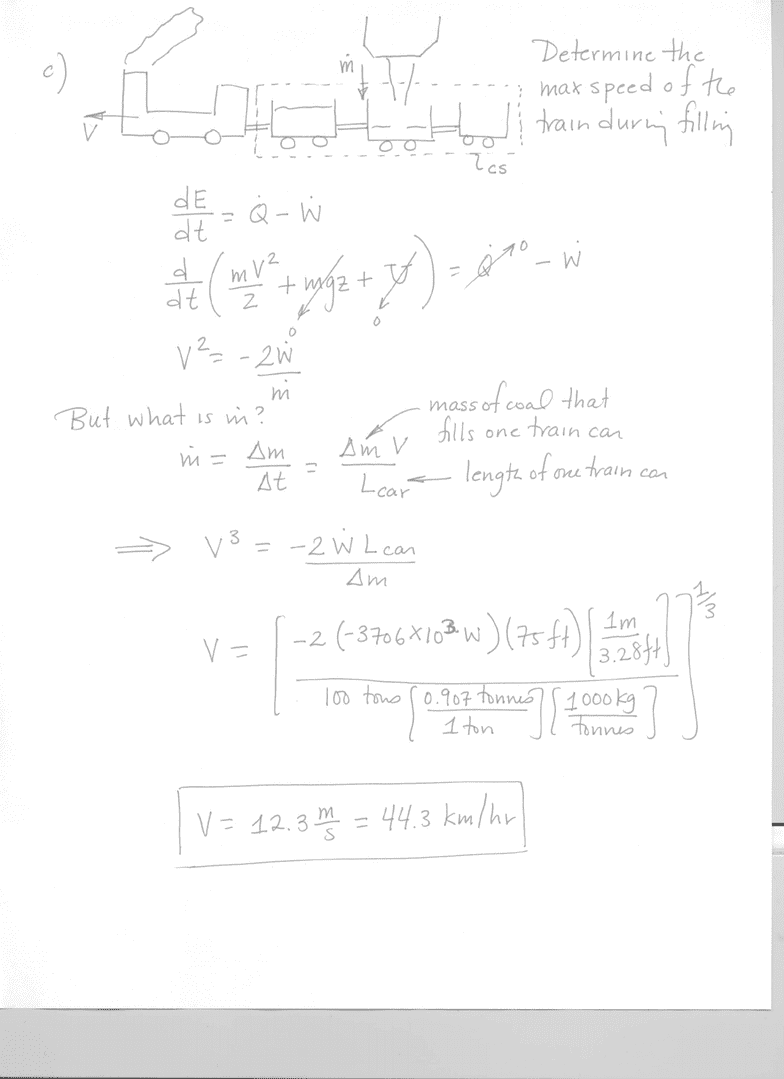 c)
ṁ
V
CS
Determine the
max speed of the
train during filling
dE/dt = Q̇ - Ẇ
d/dt ( mV²/2 + mgz + U ) = Q̇ - Ẇ
0 0 0
V² = -2Ẇ/ṁ
But what is ṁ?
mass of coal that
fills one train car
ṁ = Δm/Δt = Δm V/Lcar
length of one train car
⇒ V³ = -2 Ẇ Lcar/Δm
V = [ -2 (-3706×10³ W) (75 ft) [1m/3.28ft] / 100 tons [0.907 tonnes/1 ton] [1000 kg/tonnes] ]^1/3
V = 12.3 m/s = 44.3 km/hr